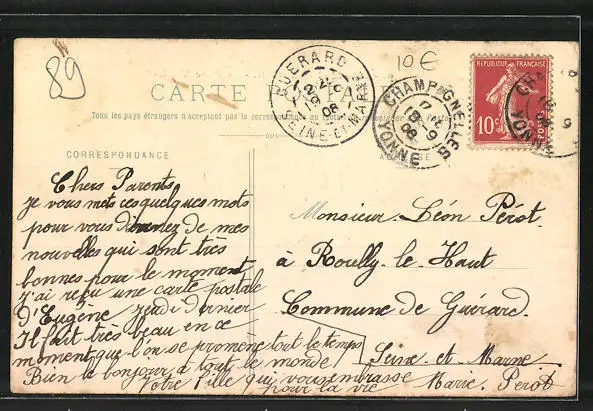 89
10 €
CARTE POSTALE
Tous les pays étrangers n'acceptent pas la correspondance au
CORRESPONDANCE
GUERARD
SEINE-ET-MARNE
CHAMPIGNELLES
YONNE
REPUBLIQUE FRANÇAISE
10c
POSTES
YONNE
Chers Parents
Je vous mets ces quelques mots
pour vous donnez de mes
nouvelles qui sont très
bonnes pour le moment
j'ai reçu une carte postale
d'Eugène jeudi dernier
Il fait très beau en ce
moment que l'on se promène tout le temps
Bien le bonjour à tout le monde
Votre fille qui vous embrasse
pour la vie Marie Perot
Monsieur Léon Pérot
à Rouilly-le-Haut
Commune de Guérard
Seine et Marne